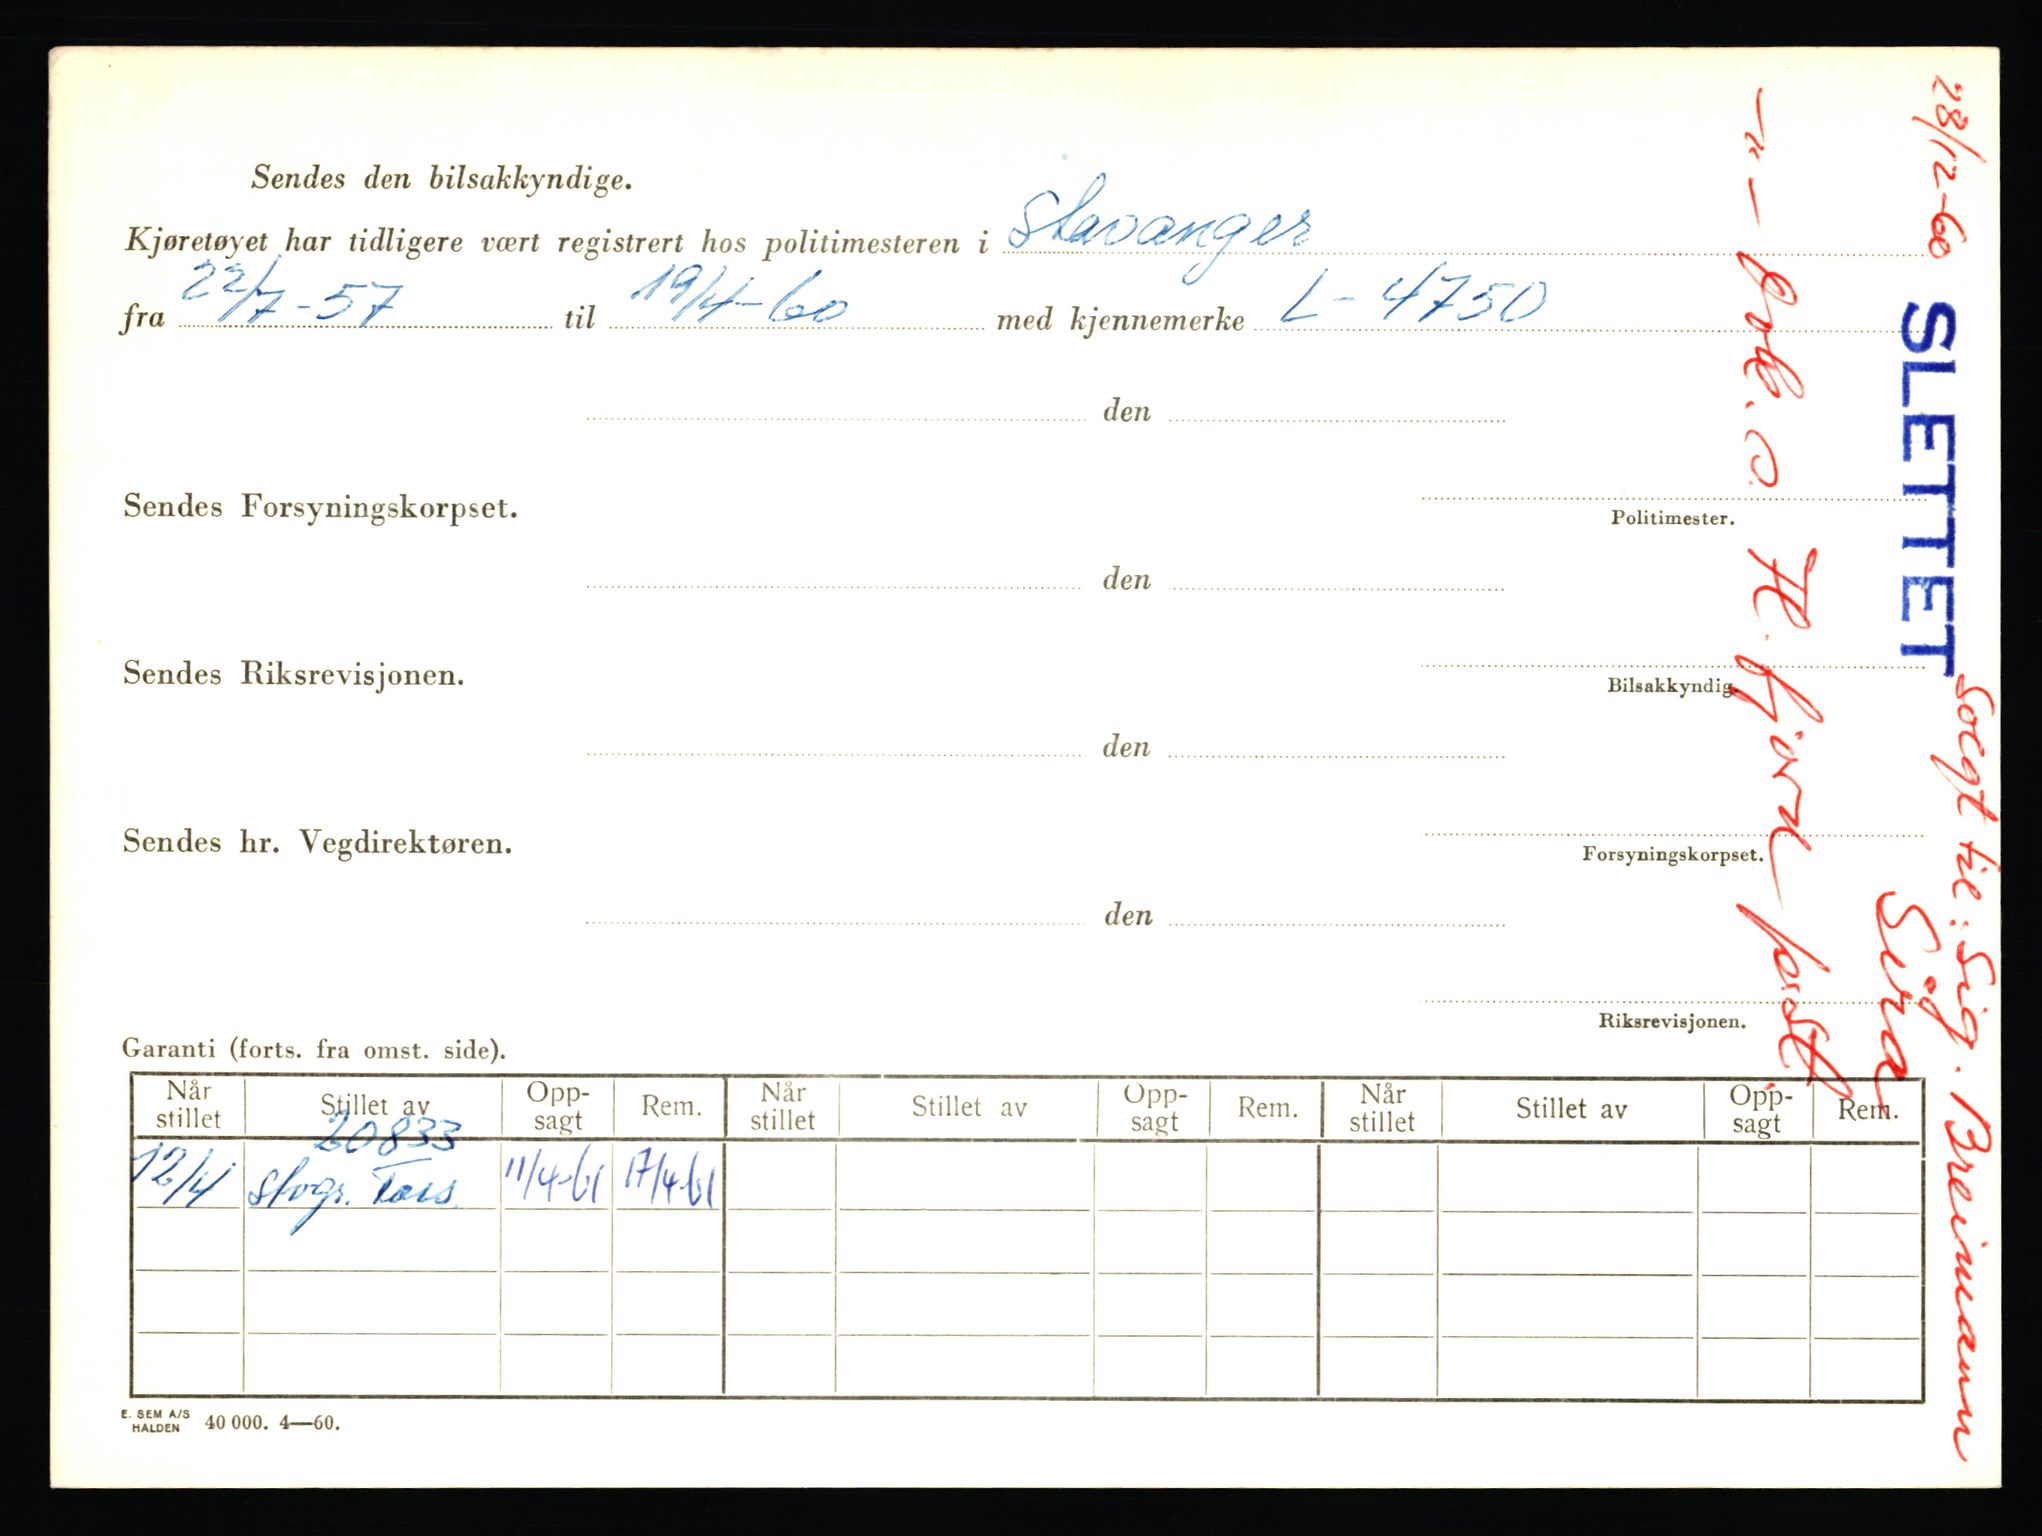 Sendes den bilsakkyndige.
Kjøretøyet har tidligere vært registrert hos politimesteren i Stavanger
fra 22/7-57 til 19/4-60 med kjennemerke L-4750
den
Sendes Forsyningskorpset.
Politimester.
den
Sendes Riksrevisjonen.
Bilsakkyndig.
den
Sendes hr. Vegdirektøren.
Forsyningskorpset.
den
Riksrevisjonen.
Garanti (forts. fra omst. side).
Når stillet Stillet av Opp-sagt Rem. Når stillet Stillet av Opp-sagt Rem. Når stillet Stillet av Opp-sagt Rem.
20833
12/4 Stvgr. 11/4-61 17/4-61
E. SEM A/S
HALDEN 40 000. 4—60.
28/12-60 SLETTET solgt til: Sig. Breimann
Sira
— " — H.